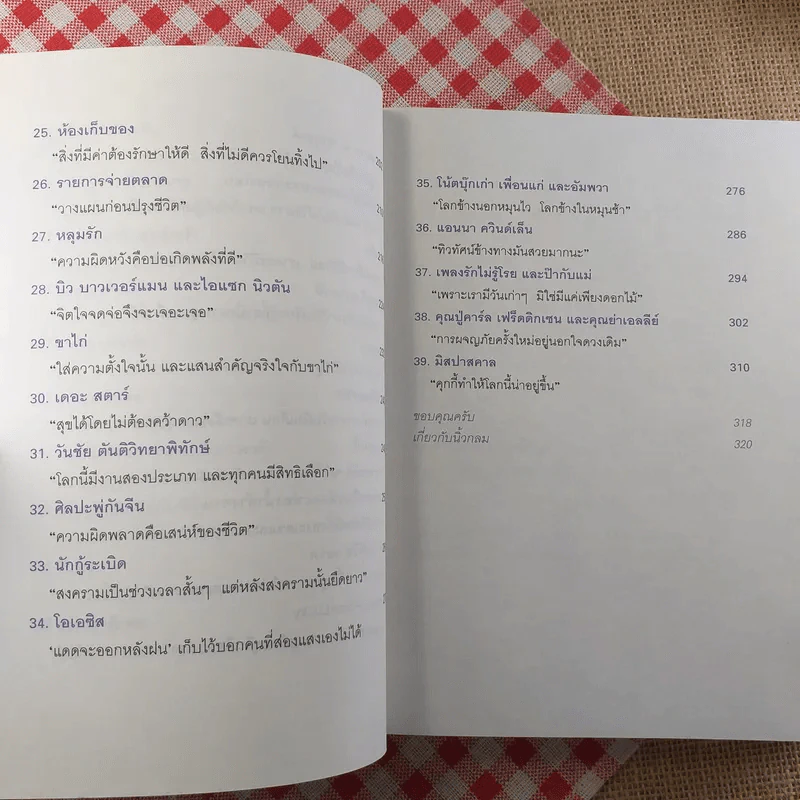 25. ห้องเก็บของ
“สิ่งที่มีค่าต้องรักษาให้ดี สิ่งที่ไม่ดีควรโยนทิ้งไป”
26. รายการจ่ายตลาด
“วางแผนก่อนปรุงชีวิต”
27. หลุมรัก
“ความผิดหวังคือบ่อเกิดพลังที่ดี”
28. บิว บาวเวอร์แมน และไอแซก นิวตัน
“จิตใจจดจ่อจึงจะเจอะเจอ”
29. ขาไก่
“ใส่ความตั้งใจนั้น และแสนสำคัญจริงใจกับขาไก่”
30. เดอะ สตาร์
“สุขได้โดยไม่ต้องคว้าดาว”
31. วันชัย ตันติวิทยาพิทักษ์
“โลกนี้มีงานสองประเภท และทุกคนมีสิทธิเลือก”
32. ศิลปะพู่กันจีน
“ความผิดพลาดคือเสน่ห์ของชีวิต”
33. นักกู้ระเบิด
“สงครามเป็นช่วงเวลาสั้นๆ แต่หลังสงครามนั้นยืดยาว”
34. โอเอซิส
‘แดดจะออกหลังฝน’ เก็บไว้บอกคนที่ส่องแสงเองไม่ได้
35. โน้ตบุ๊กเก่า เพื่อนแก่ และอัมพวา 276
“โลกข้างนอกหมุนไว โลกข้างในหมุนช้า”
36. แอนนา ควินด์เล็น 286
“ทิวทัศน์ข้างทางมันสวยมากนะ”
37. เพลงรักไม่รู้โรย และป๊ากับแม่ 294
“เพราะเรามีวันเก่าๆ มิใช่มีแค่เพียงดอกไม้”
38. คุณปู่คาร์ล เฟร็ดดิกเซน และคุณย่าเอลลีย์ 302
“การผจญภัยครั้งใหม่อยู่นอกใจดวงเดิม”
39. มิสปาสคาล 310
“คุกกี้ทำให้โลกนี้น่าอยู่ขึ้น”
ขอบคุณครับ 318
เกี่ยวกับนิ้วกลม 320